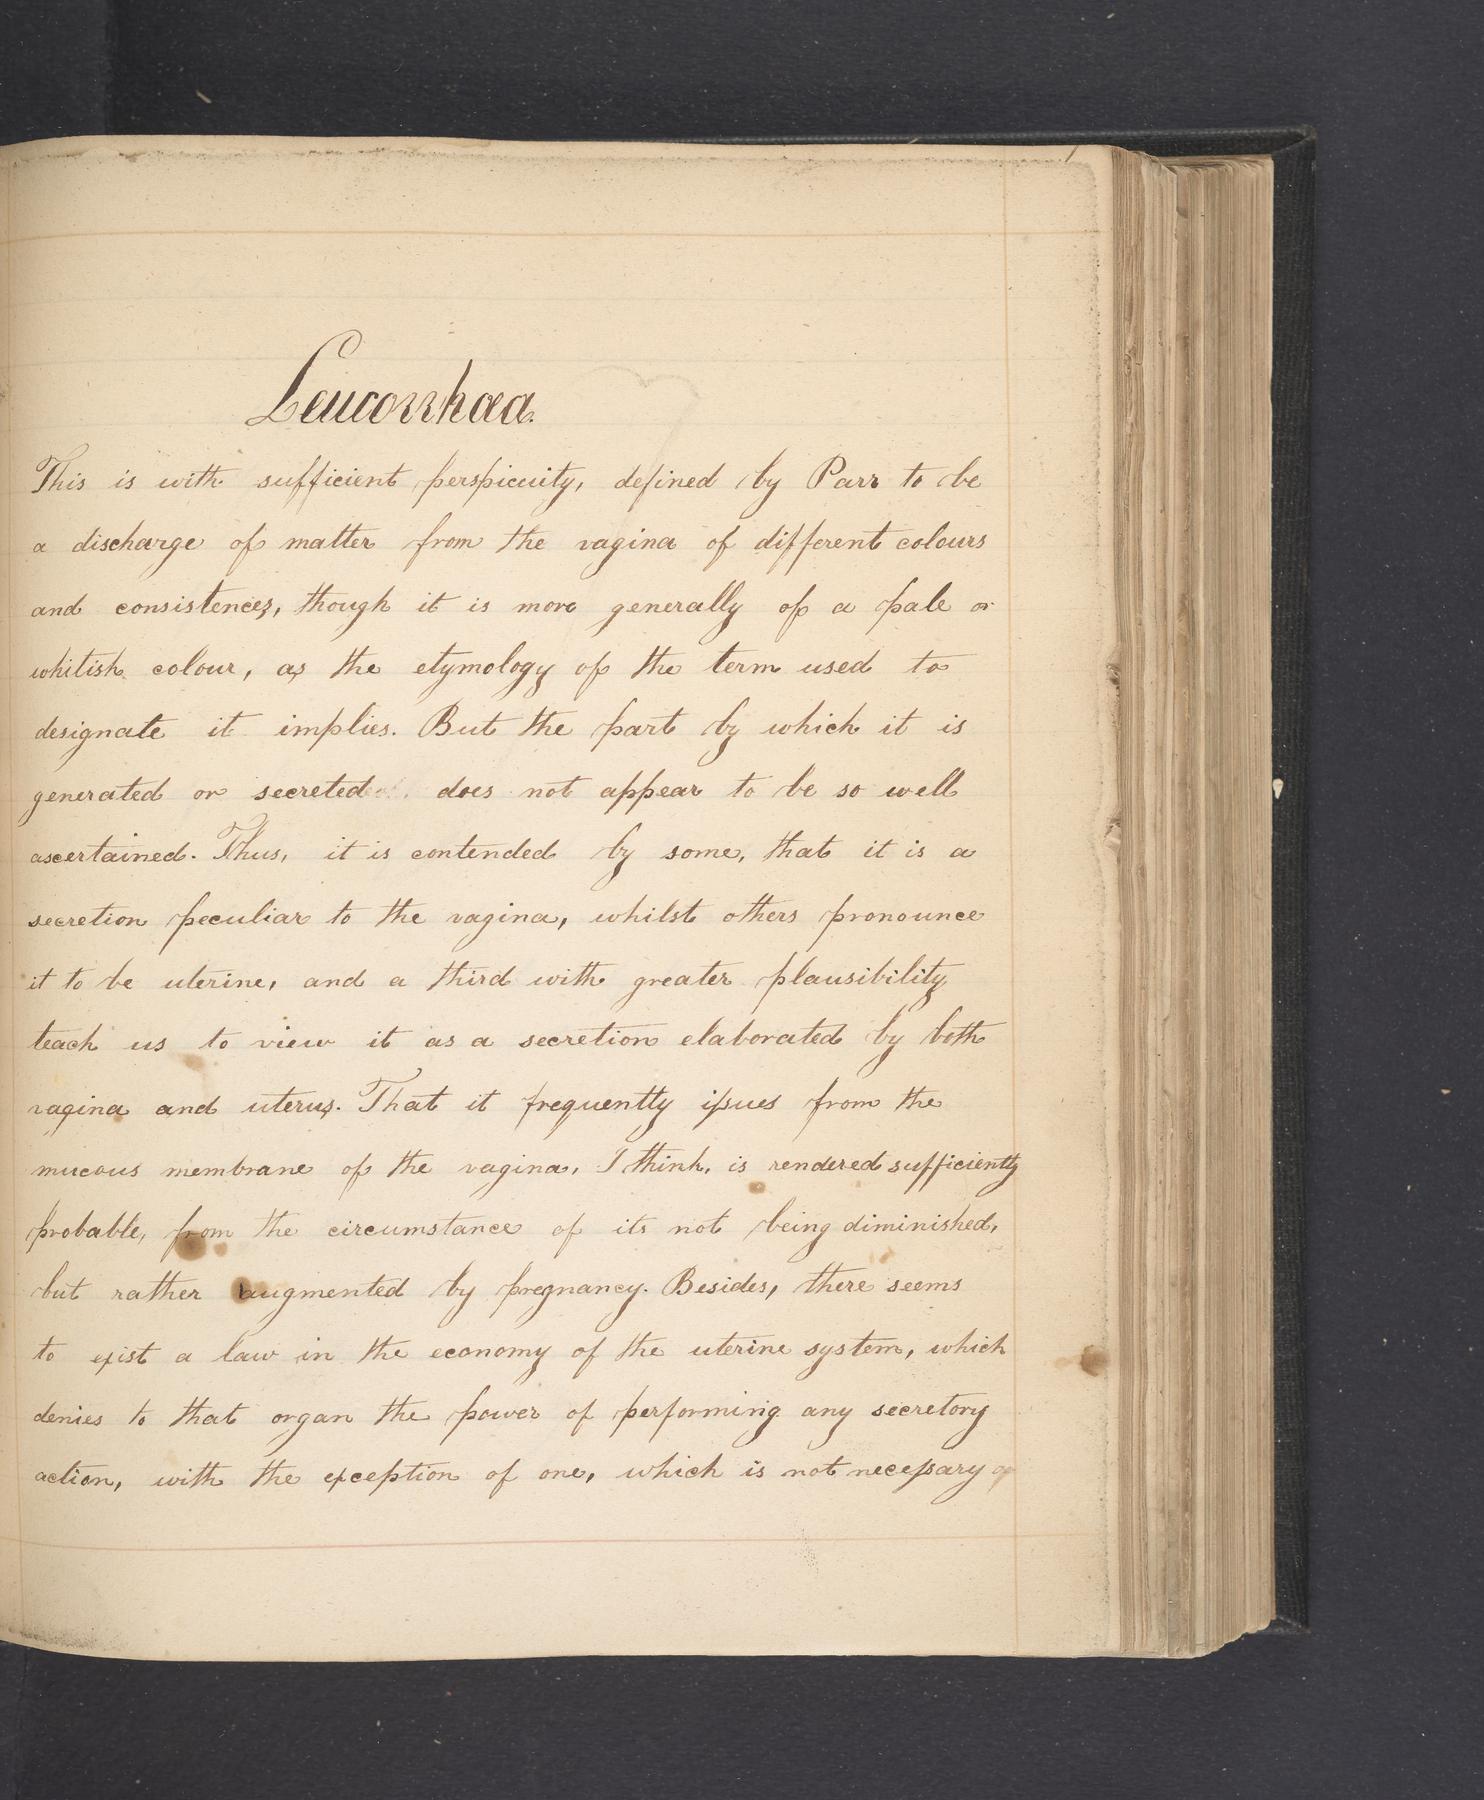 Leucorrhœa.
This is with sufficient perspicuity, defined by Parr to be
a discharge of matter from the vagina of different colours
and consistences, though it is more generally of a pale or
whitish colour, as the etymology of the term used to
designate it implies. But the part by which it is
generated or secreted does not appear to be so well
ascertained. Thus, it is contended by some, that it is a
secretion peculiar to the vagina, whilst others pronounce
it to be uterine, and a third with greater plausibility
teach us to view it as a secretion elaborated by both
vagina and uterus. That it frequently issues from the
mucous membrane of the vagina, I think, is rendered sufficiently
probable, from the circumstance of its not being diminished,
but rather augmented by pregnancy. Besides, there seems
to exist a law in the economy of the uterine system, which
denies to that organ the power of performing any secretory
action, with the exception of one, which is not necessary